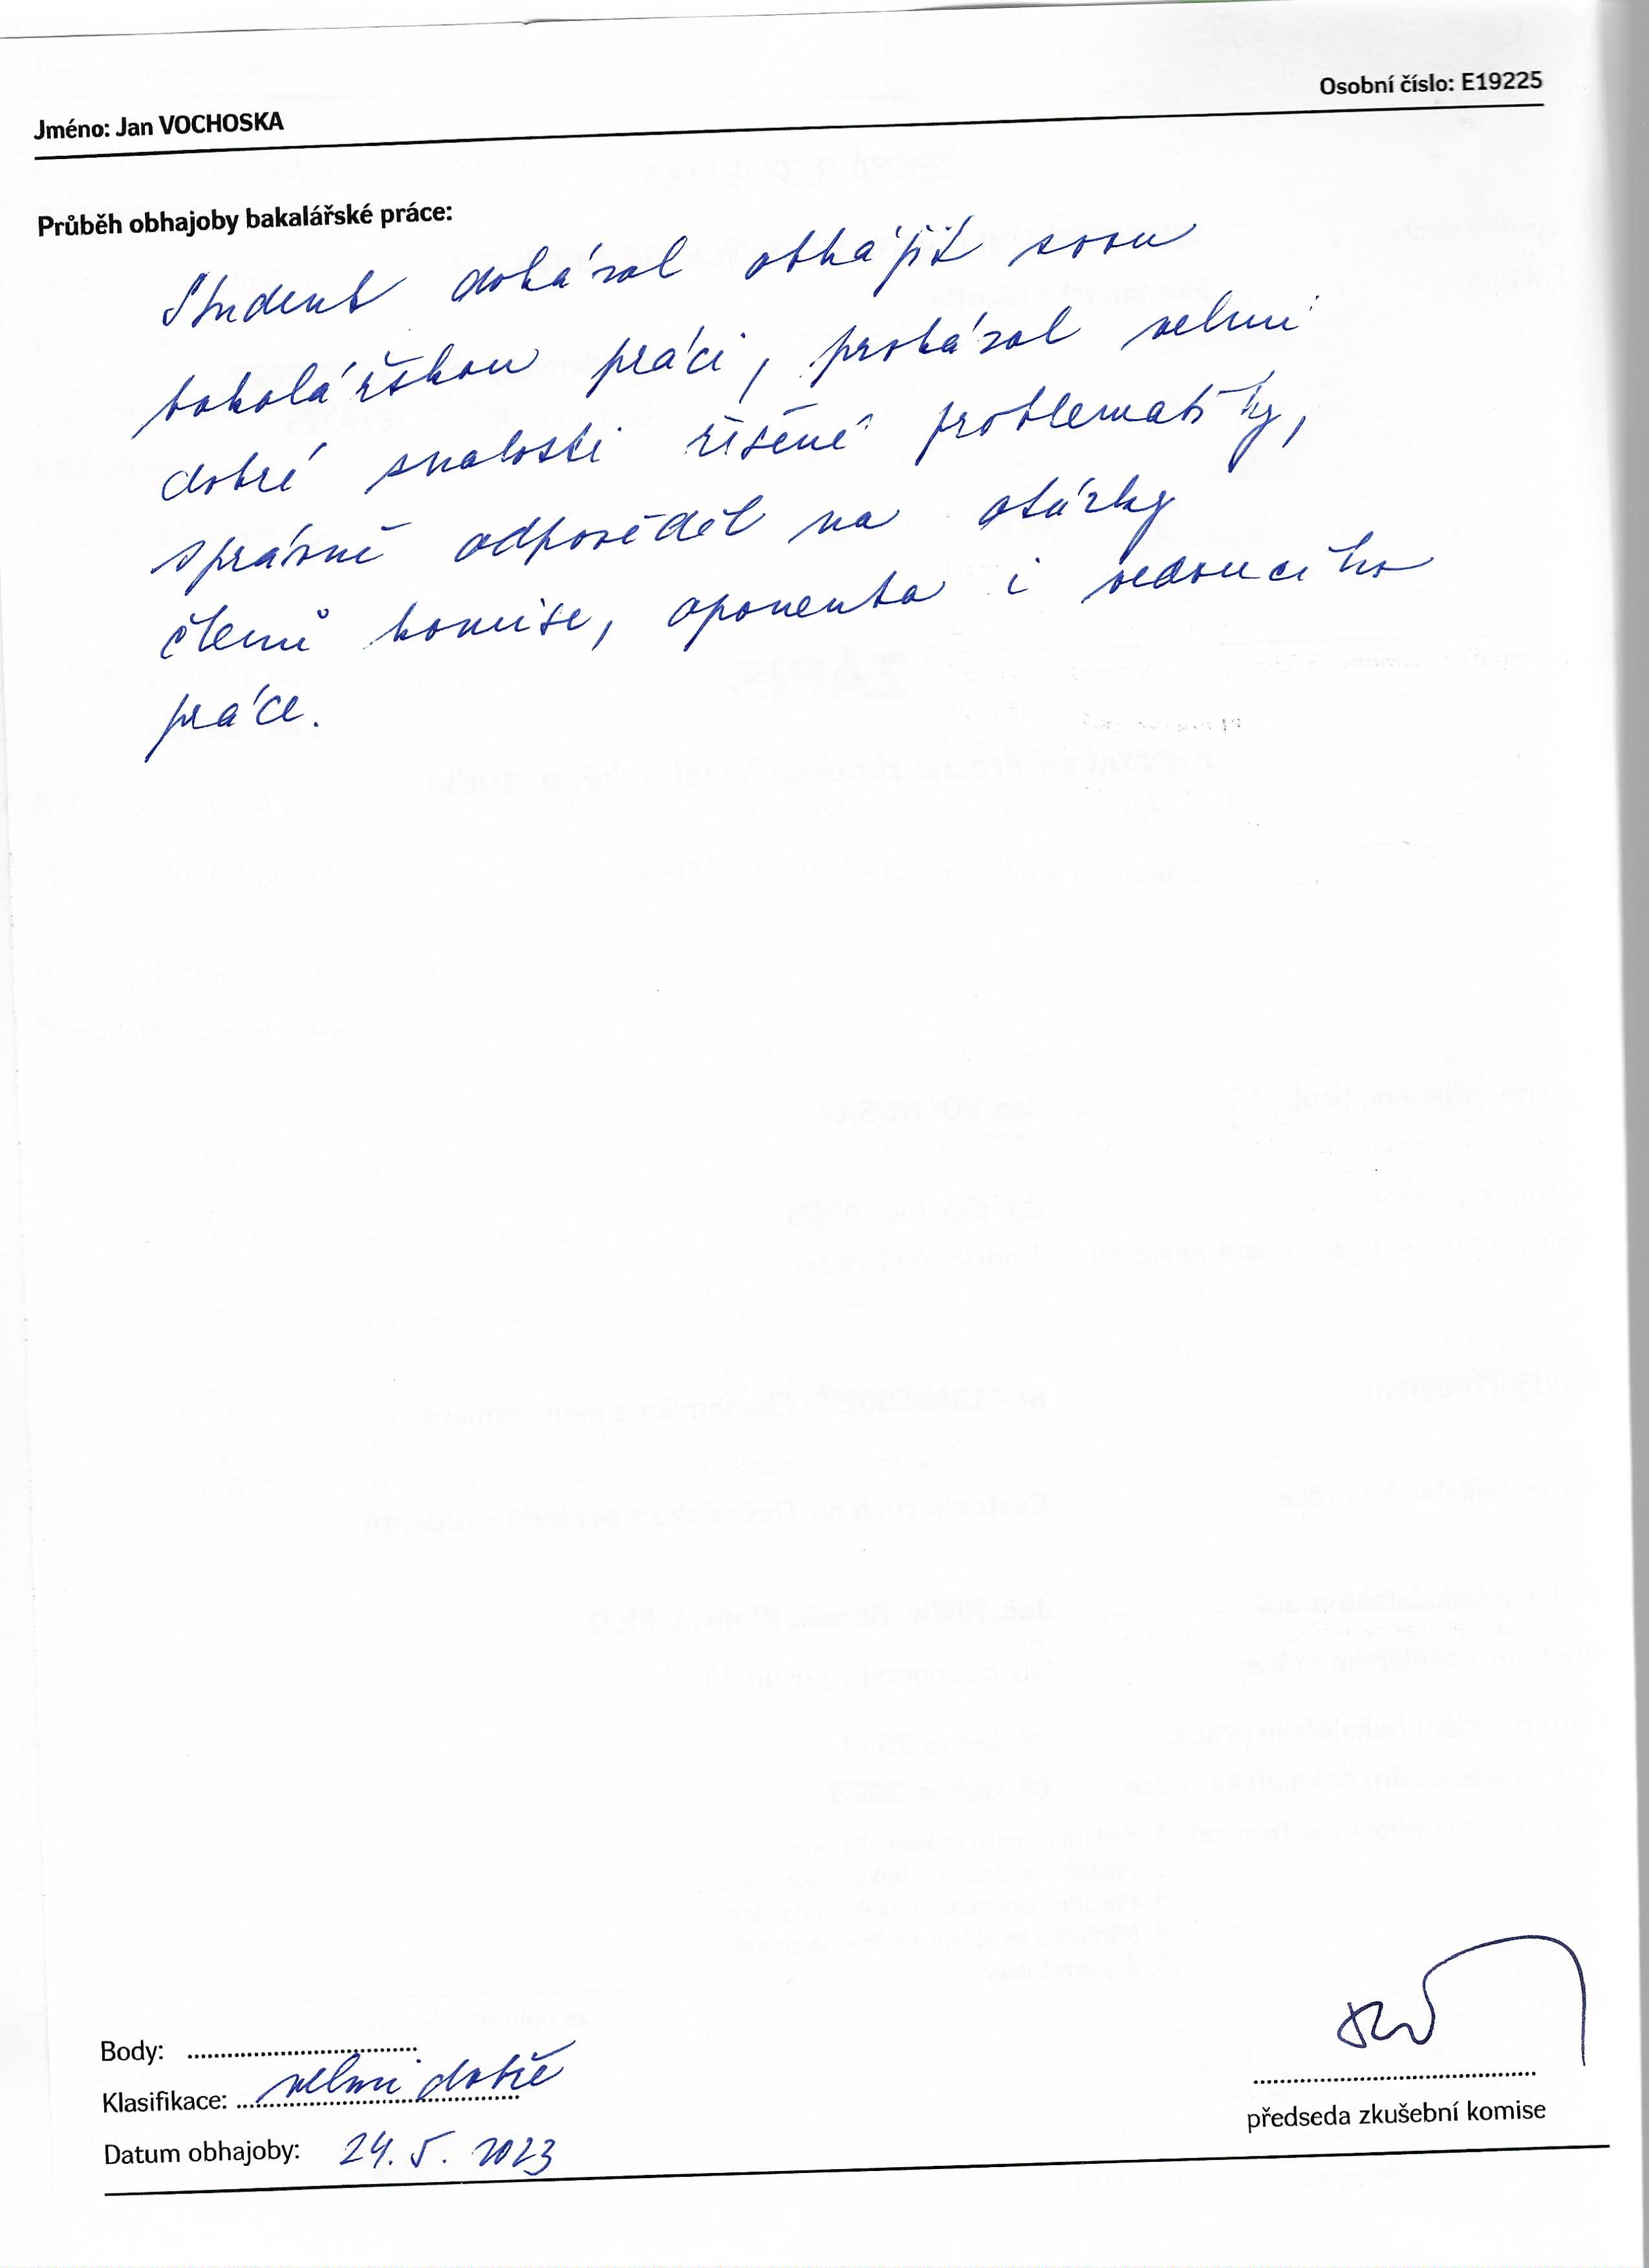 Osobní číslo: E19225
Jméno: Jan VOCHOSKA
Průběh obhajoby bakalářské práce:
Student dokázal obhájit svou
bakalářskou práci, prokázal velmi
dobré znalosti řešené problematiky,
správně odpověděl na otázky
členů komise, oponenta i vedoucího
práce.
Body: ........................................
Klasifikace: velmi dobře
Datum obhajoby: 24. 5. 2023
předseda zkušební komise